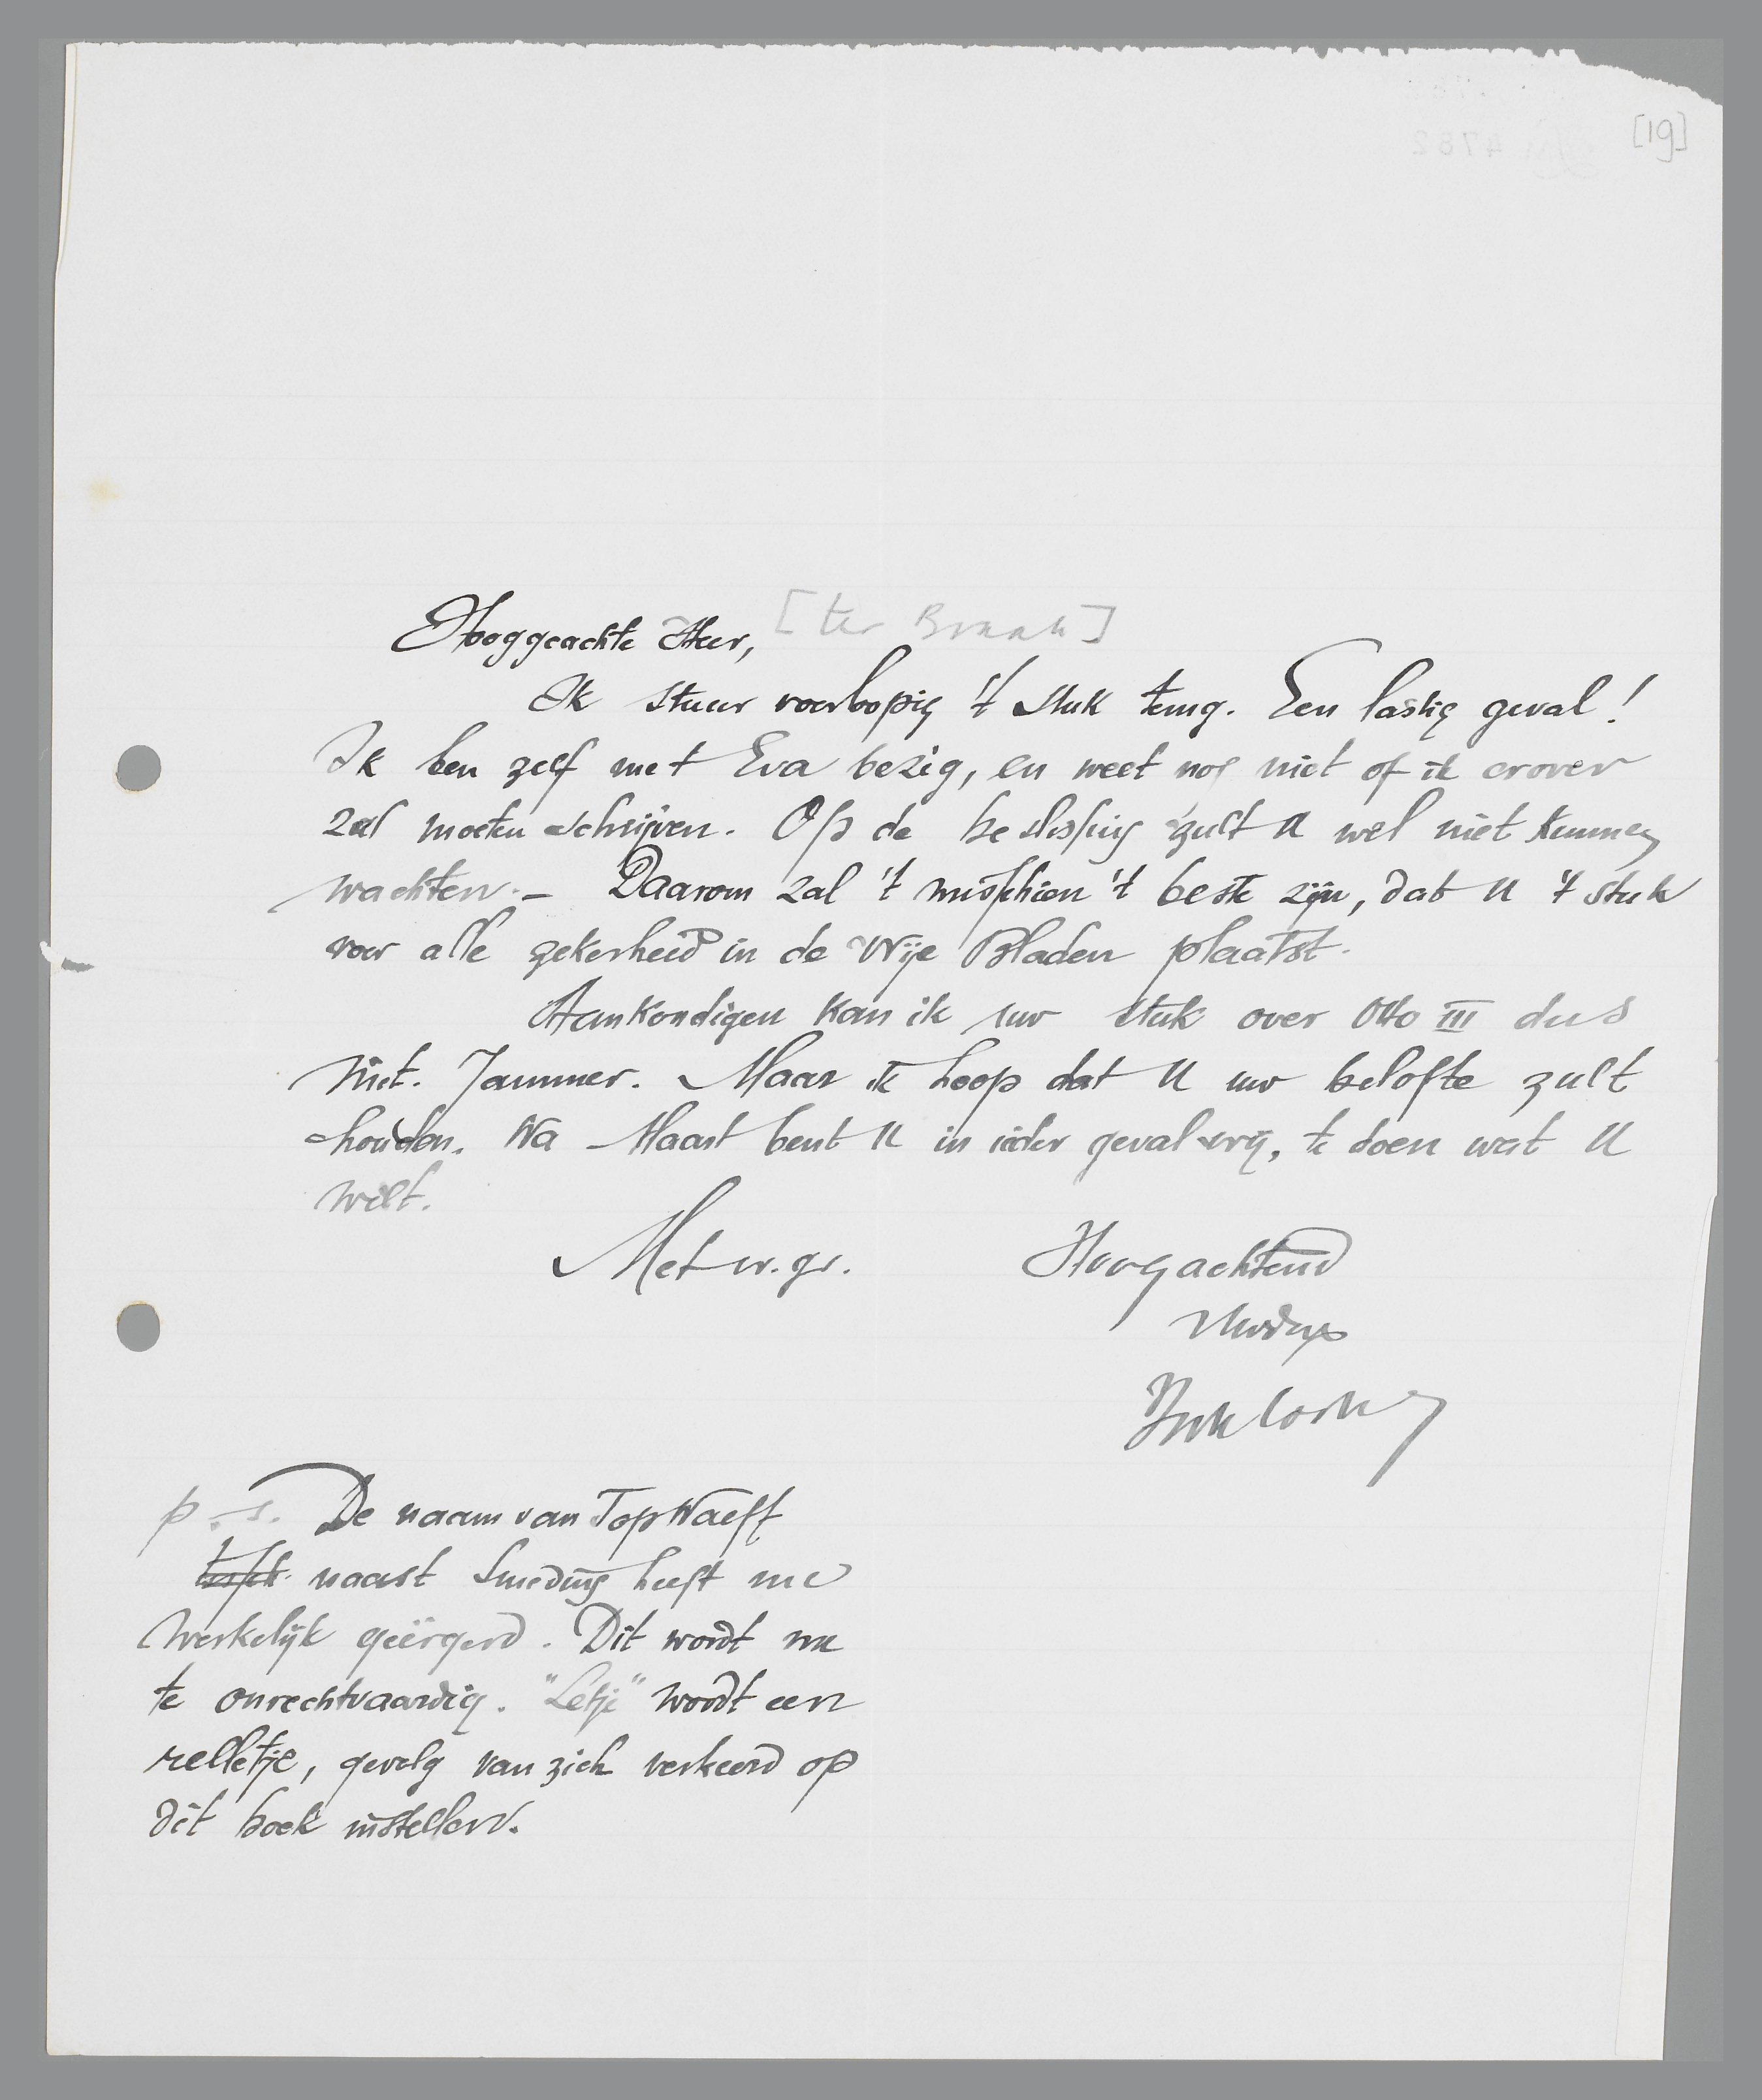 [19]
Hooggeachte Heer, [ter Braak]
Ik stuur voorloopig 't stuk terug. Een lastig geval!
Ik ben zelf met Eva bezig, en weet nog niet of ik erover
zal moeten schrijven. Op de beslissing zult U wel niet kunnen
wachten. – Daarom zal 't misschien 't beste zijn, dat U 't stuk
voor alle zekerheid in de Vrije Bladen plaatst.
Aankondigen kan ik uw stuk over Otto III dus
niet. Jammer. Maar ik hoop dat U uw belofte zult
houden. Na Maart bent U in ieder geval vrij, te doen wat U
wilt.
Met vr. gr. Hoogachtend
p.s. De naam van Top Naeff
naast Smeding heeft me
werkelijk geërgerd. Dit wordt me
te onrechtvaardig. "Letje" wordt een
relletje, gevolg van zich verkeerd op
dit boek instellen.